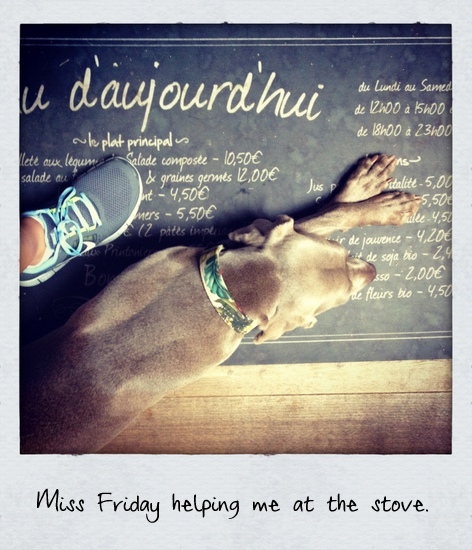 u d'aujourd'hui
du Lundi au Samed
de 12h00 à 15h00
de 18h00 à 23h00
~le plat principal~
lleté aux légum Salade composée - 10,50€
salade au & graines germés 12,00€
nt - 4,50€
ners - 5,50€
€ (2 pâtes
Jus talité - 5,00
5,50€
ulée - 4,50
ir de jouvence - 4,20€
it de soja bio - 2,4
sso - 2,00€
de fleurs bio - 4,50
Miss Friday helping me at the stove.